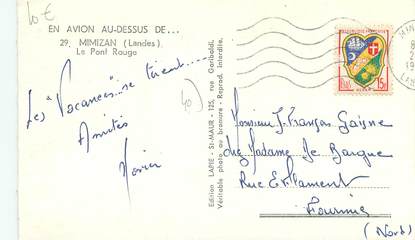 10€
EN AVION AU-DESSUS DE...
29. MIMIZAN (Landes)
Le Pont Rouge
Les "Vacances"... se tirent......
Amitiés
Xavier
40
Edition LAPIE - St-MAUR - 125, rue Garibaldi.
Véritable photo au bromure - Reprod. interdite.
REPUBLIQUE FRANÇAISE
15F
ALGER
MIM
LAN
Monsieur J. François
chez Madame Le Barque
Rue
Fourmies
(Nord)